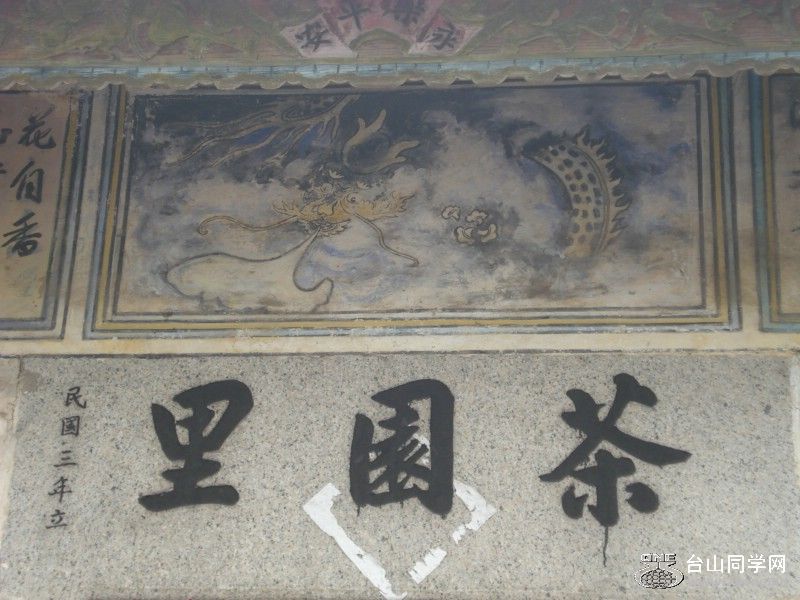 永樂平安
花自香
茶園里
民國三年立
ONE
台山同学网